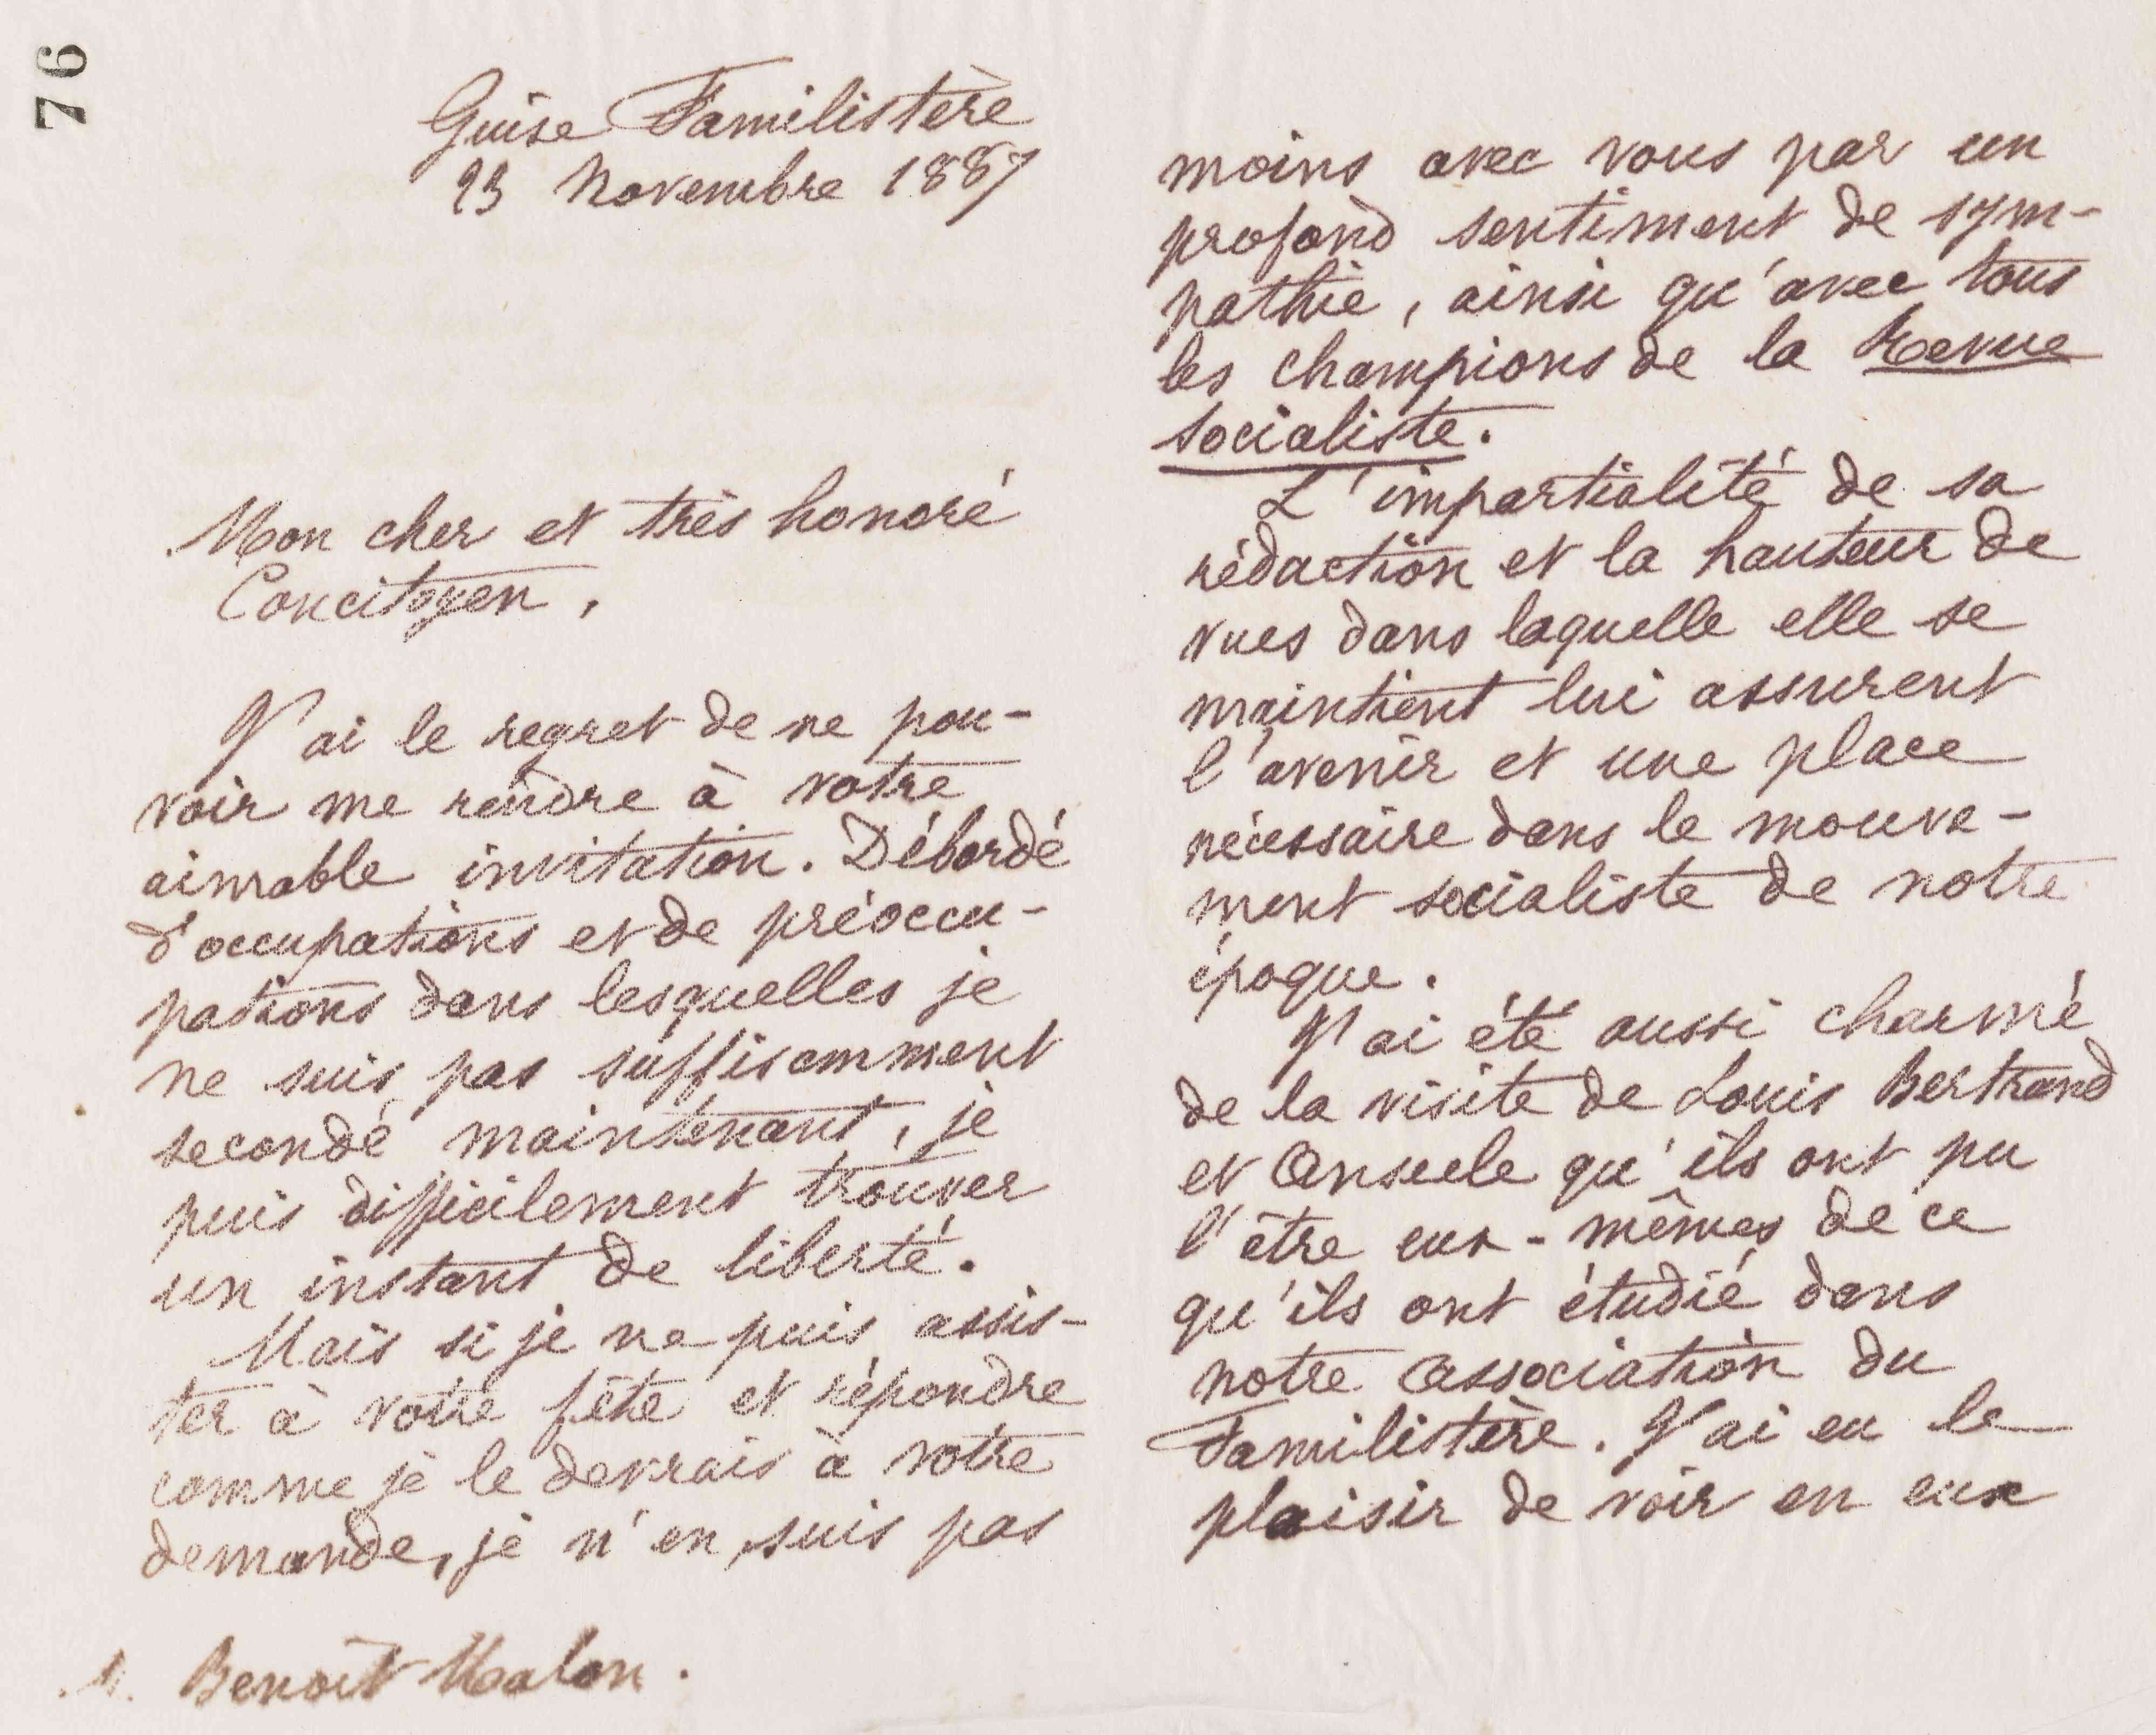 76
Guise Familistère
23 Novembre 1887
Mon cher et très honoré
Concitoyen,
J'ai le regret de ne pou-
voir me rendre à votre
aimable invitation. Débordé
d'occupations et de préoccu-
pations dans lesquelles je
ne suis pas suffisamment
secondé maintenant, je
puis difficilement trouver
un instant de liberté.
Mais si je ne puis assis-
ter à votre fête et répondre
comme je le devrais à votre
demande, je n'en suis pas
M. Benoît Malon.
moins avec vous par un
profond sentiment de sym-
pathie, ainsi qu'avec tous
les champions de la Revue
socialiste.
L'impartialité de sa
rédaction et la hauteur de
vues dans laquelle elle se
maintient lui assurent
l'avenir et une place
nécessaire dans le mouve-
ment socialiste de notre
époque.
J'ai été aussi charmé
de la visite de Louis Bertrand
et Anseele qu'ils ont pu
l'être eux-mêmes de ce
qu'ils ont étudié dans
notre Association du
Familistère. J'ai eu le
plaisir de voir en eux